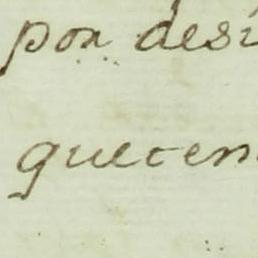 por desi
queten